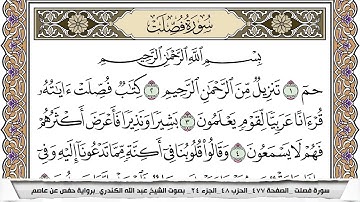 سُورَةُ فُصِّلَتْ
بِسْمِ اللَّهِ الرَّحْمَٰنِ الرَّحِيمِ
حمٓ ١ تَنزِيلٌ مِّنَ الرَّحْمَٰنِ الرَّحِيمِ ٢ كِتَٰبٌ فُصِّلَتْ ءَايَٰتُهُۥ
قُرْءَانًا عَرَبِيًّا لِّقَوْمٍ يَعْلَمُونَ ٣ بَشِيرًا وَنَذِيرًا فَأَعْرَضَ أَكْثَرُهُمْ
فَهُمْ لَا يَسْمَعُونَ ٤ وَقَالُوا۟ قُلُوبُنَا فِىٓ أَكِنَّةٍ مِّمَّا تَدْعُونَآ إِلَيْهِ وَفِىٓ
سورة فصلت _ الصفحة ٤٧٧_ الحزب ٤٨_ الجزء ٢٤_ بصوت الشيخ عبد الله الكندري _برواية حفص عن عاصم